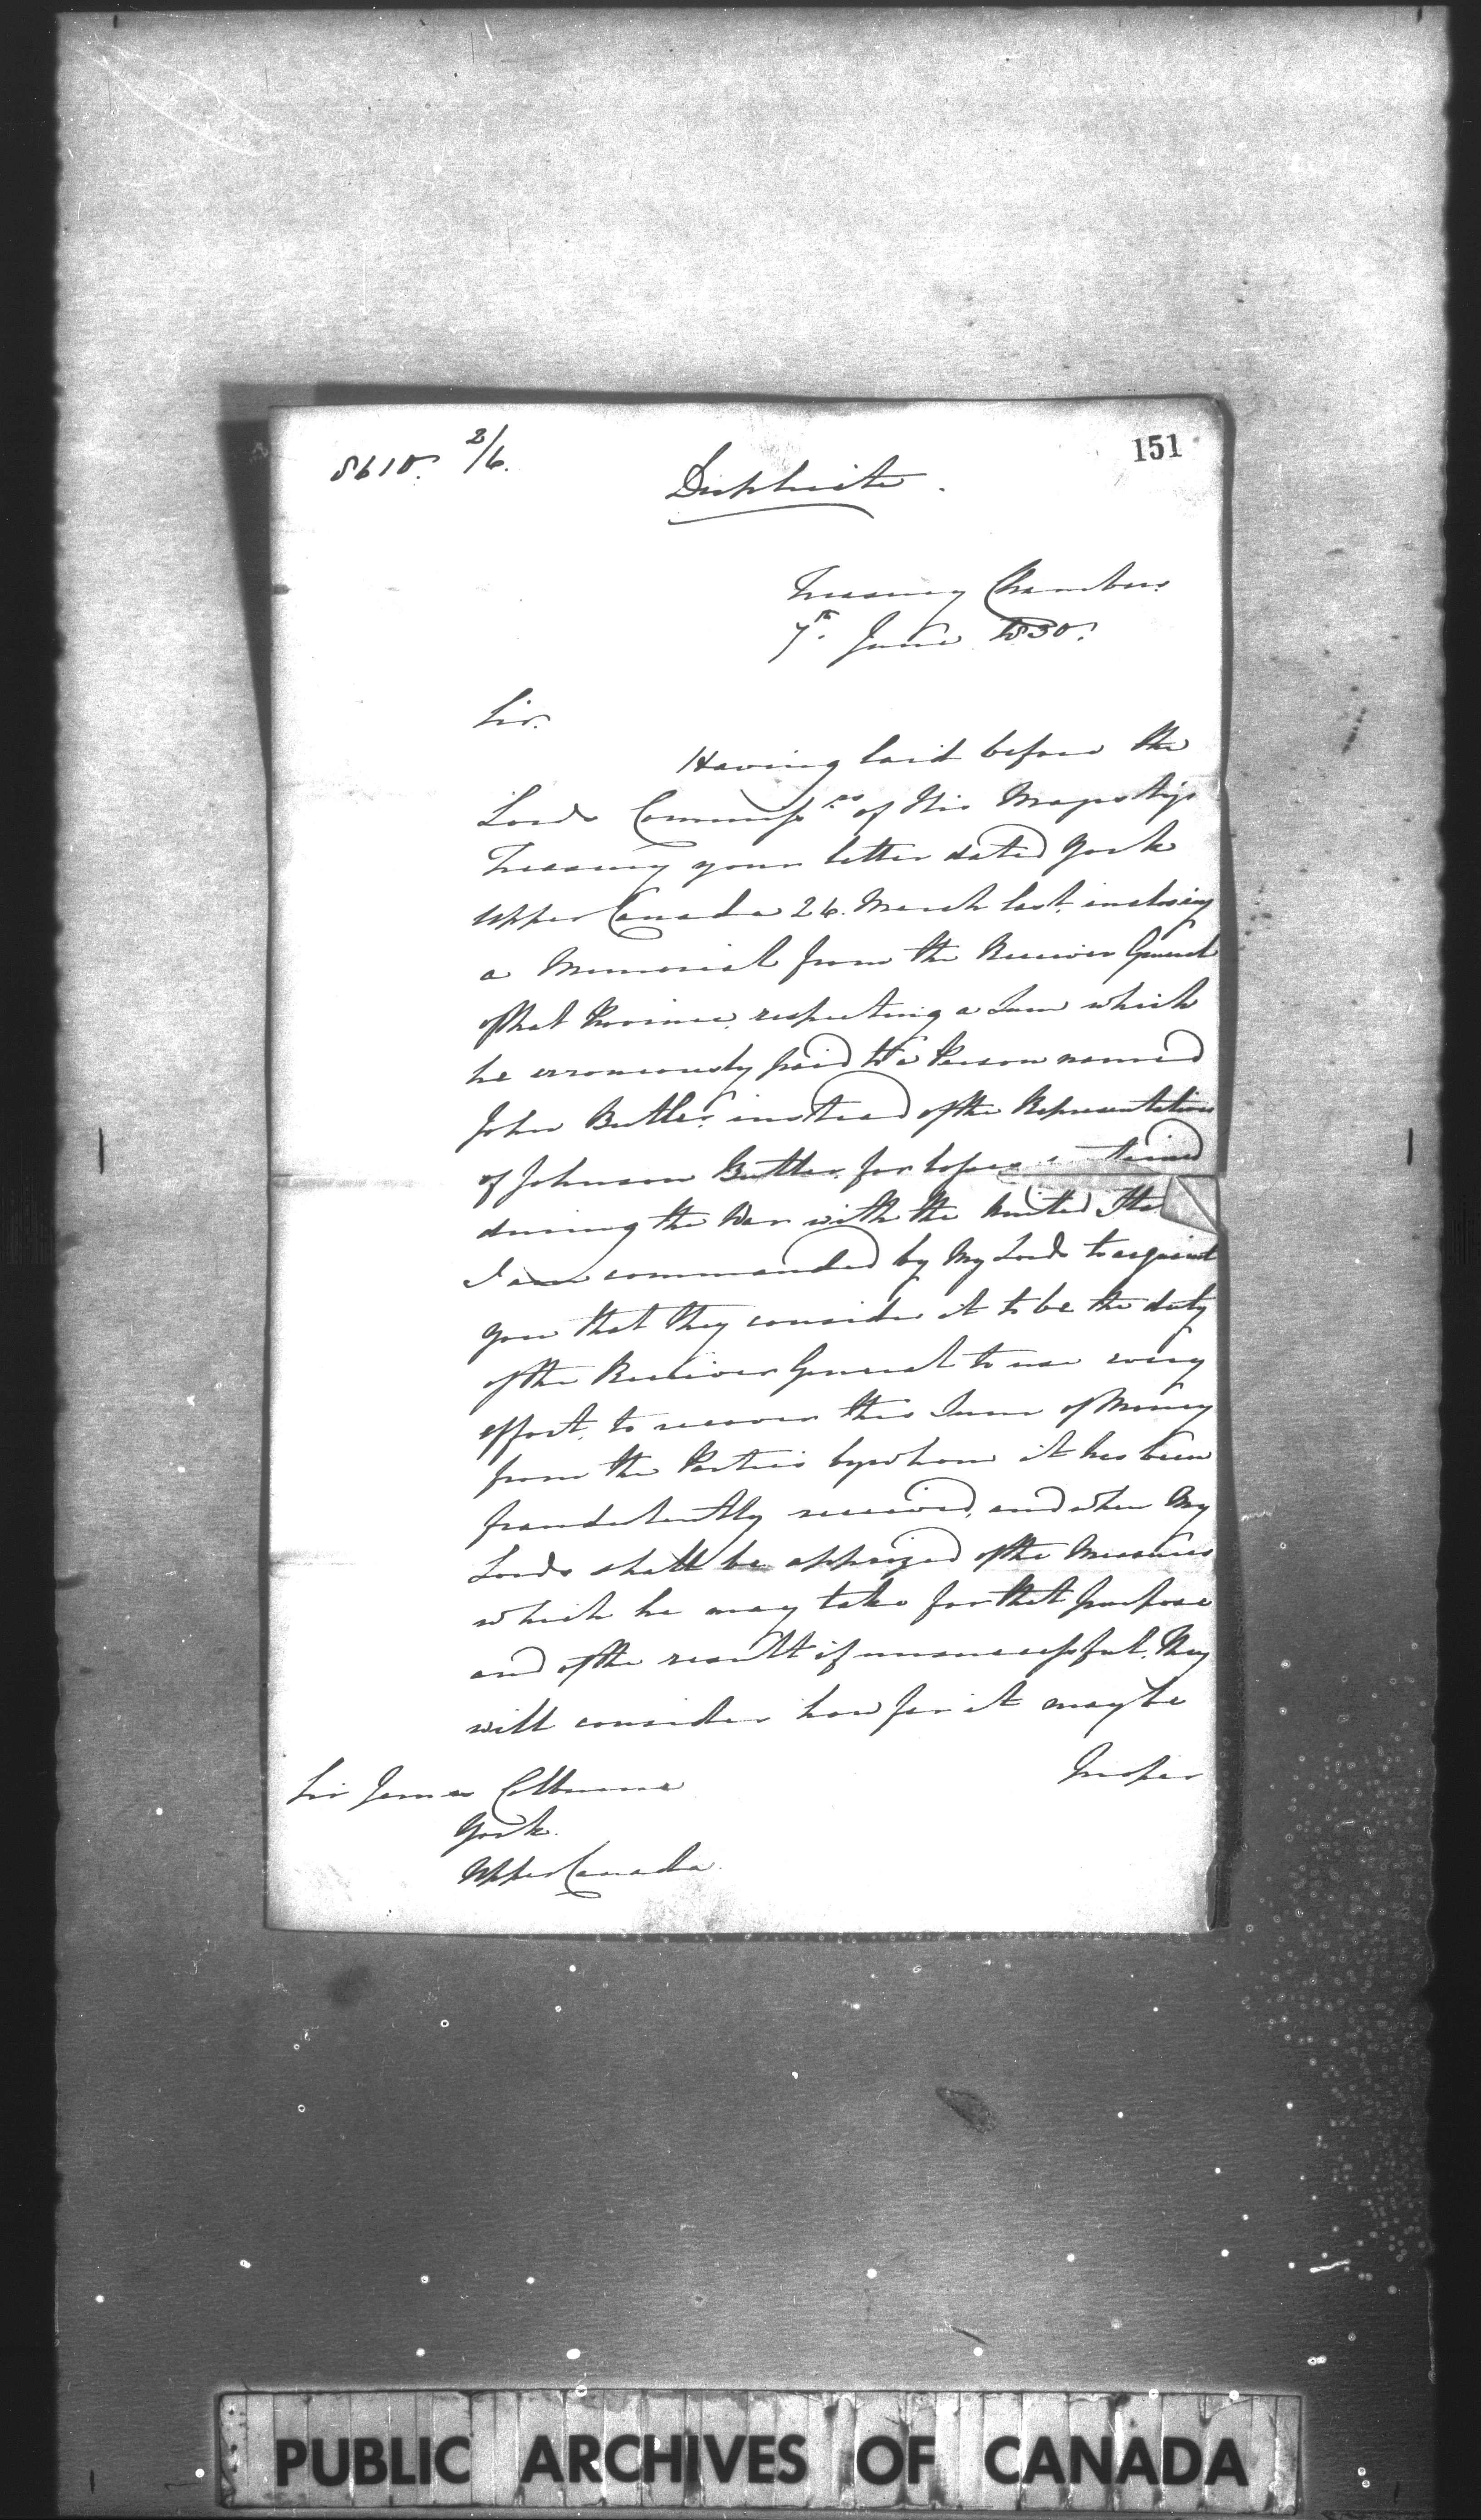 8610. 2/6.
151
Duplicate.
Treasury Chambers
7th. June 1830.
Sir.
Having laid before the
Lords Commissrs of His Majesty's
Treasury your letter dated York
Upper Canada 26. March last, inclosing
a Memorial from the Receiver General
of that Province, respecting a Sum which
he erroneously paid to a Person named
John Butler, instead of the Representatives
of Johnson Butler, for losses
during the War with the United
I am commanded by My Lords to acquaint
you that they consider it to be the duty
of the Receiver General to use every
effort, to recover this Sum of Money
from the Parties by whom it has been
fraudulently received, and when My
Lords shall be apprized of the Measures
which he may take for that purpose
and of the result if unsuccessful, they
will consider how far it may be
proper
Sir James Colborne
York.
Upper Canada.
PUBLIC ARCHIVES OF CANADA